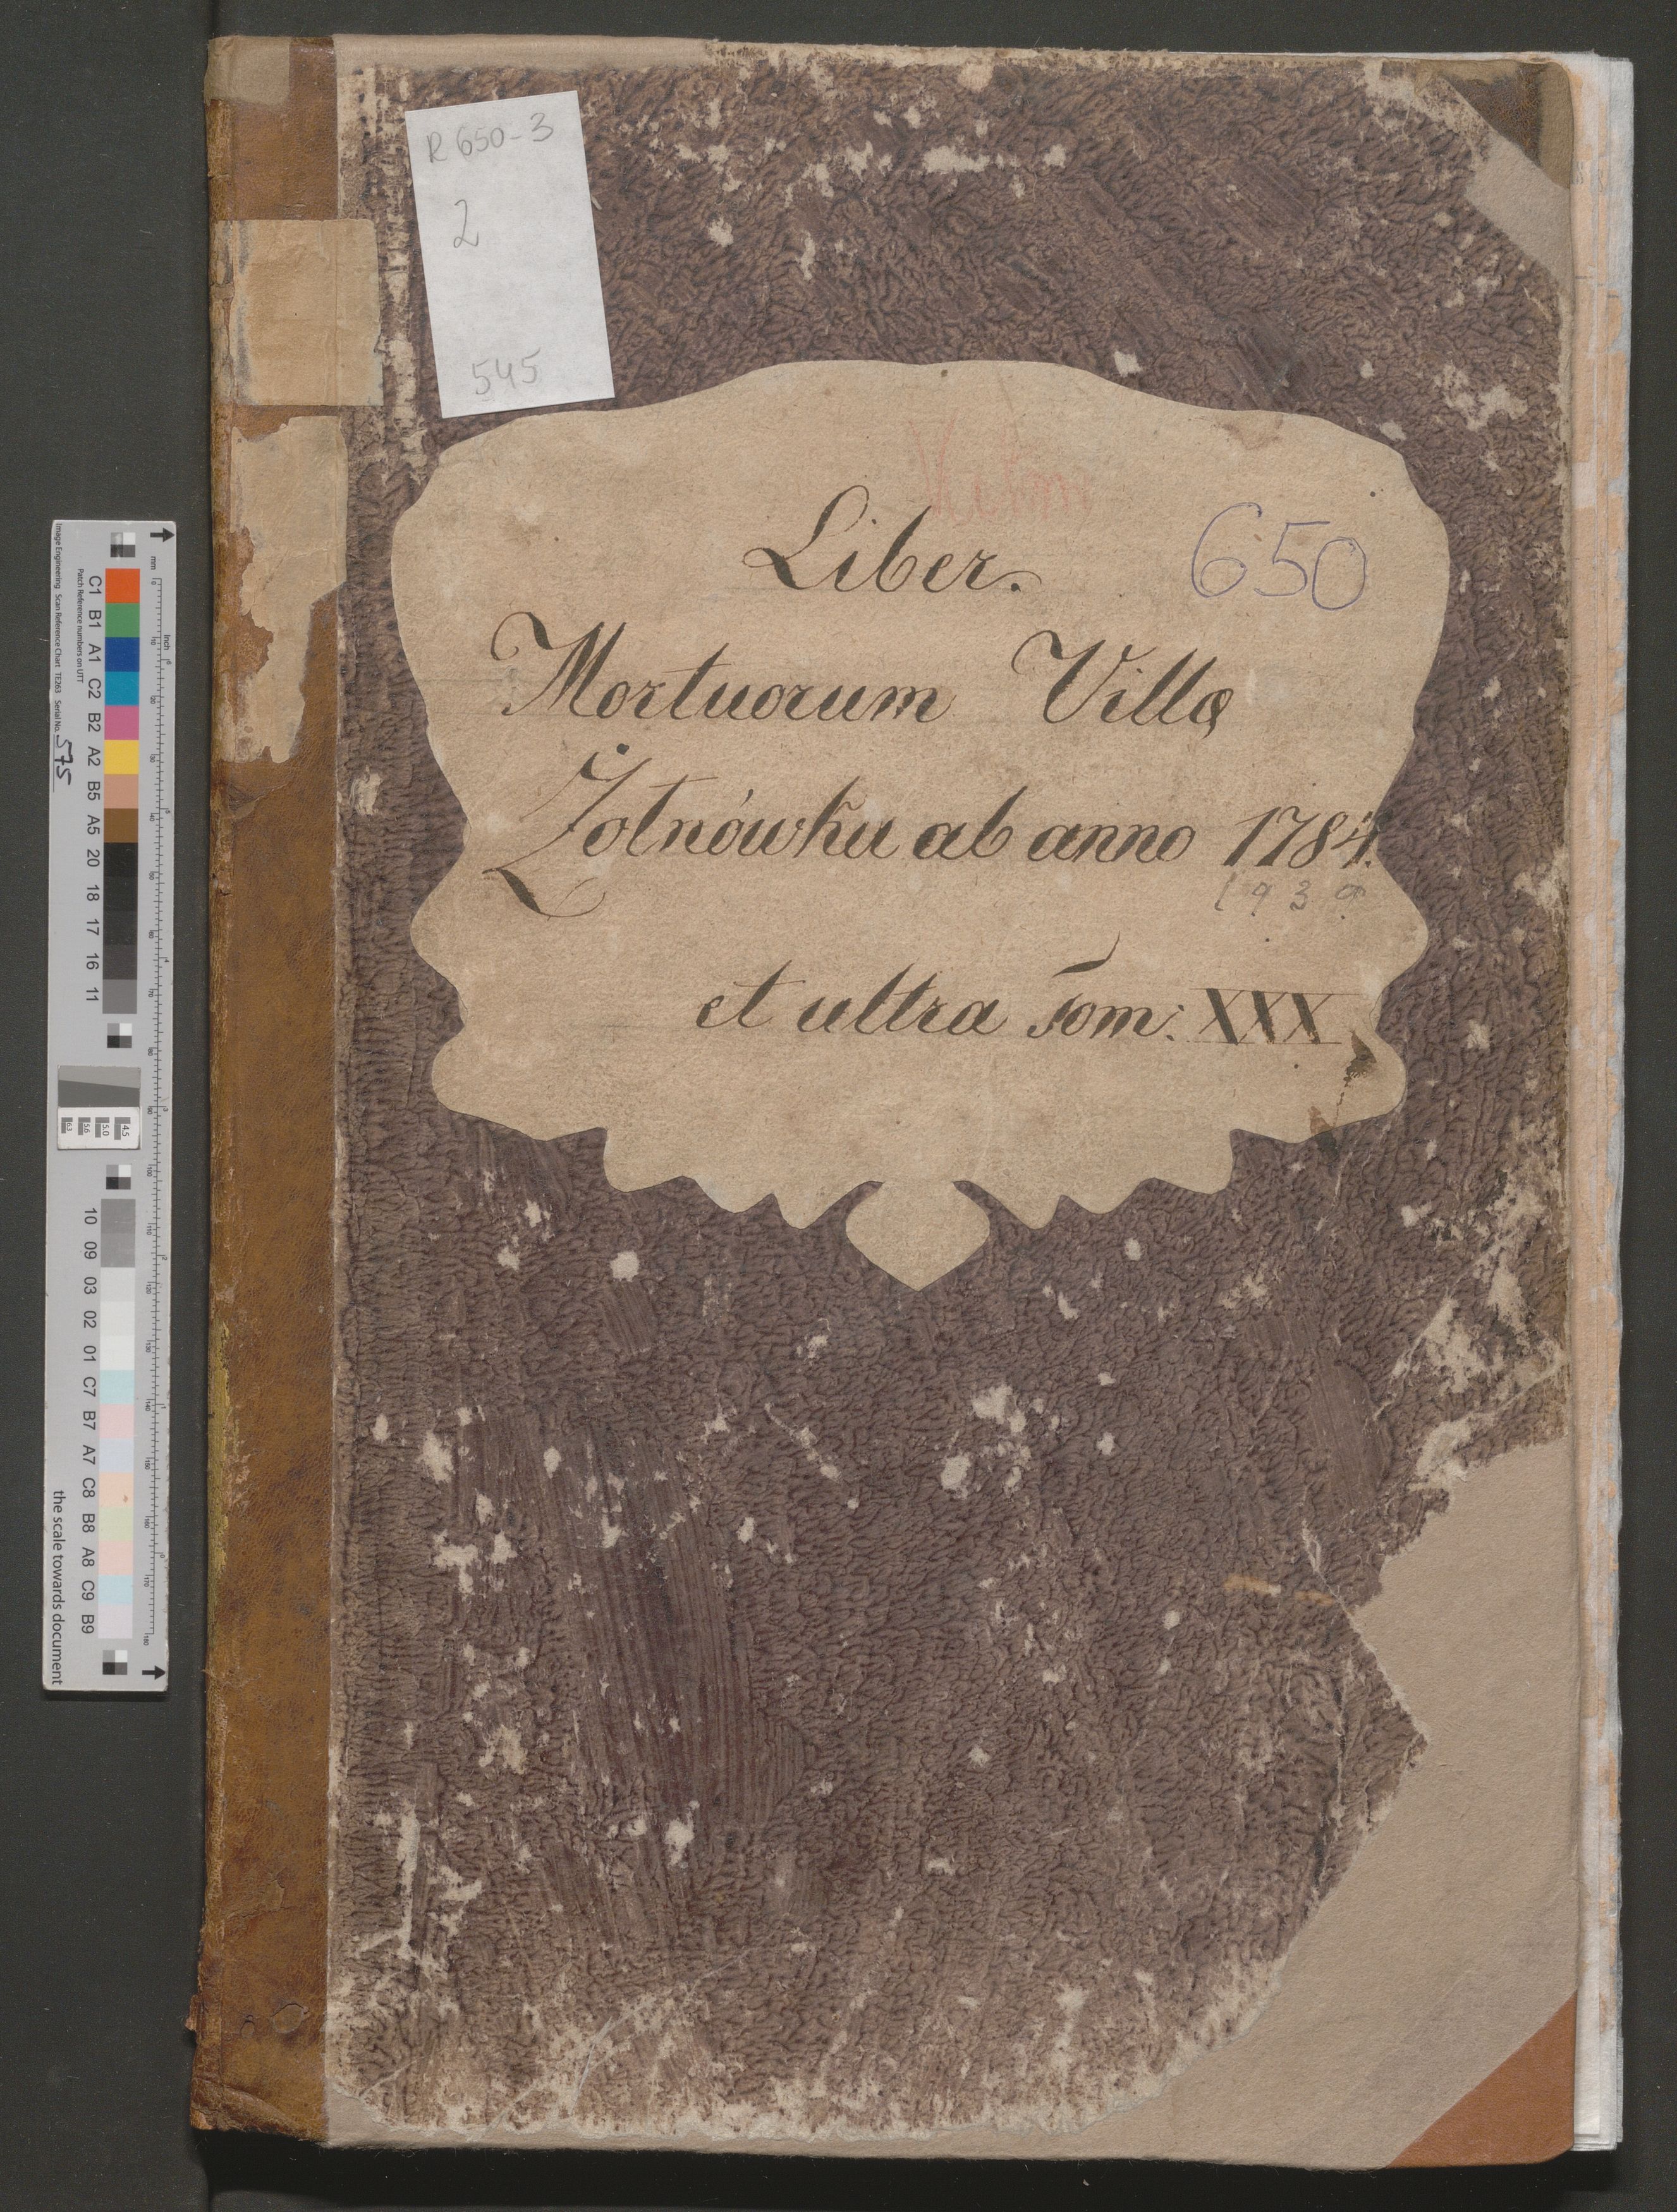 R 650-3
2
545
650
Liber.
Mortuorum Villę
Żołnówka ab anno 1784.
1939
et ultra Tom: XXX
Image Engineering Scan Reference Chart TE263 Serial No. 575
Patch Reference numbers on UTT
C1 B1 A1 C2 B2 A2 B5 A5 20 18 17 16 11
10 09 03 02 01 C7 B7 A7 C8 B8 A8 C9 B9
the scale towards document
mm
inch